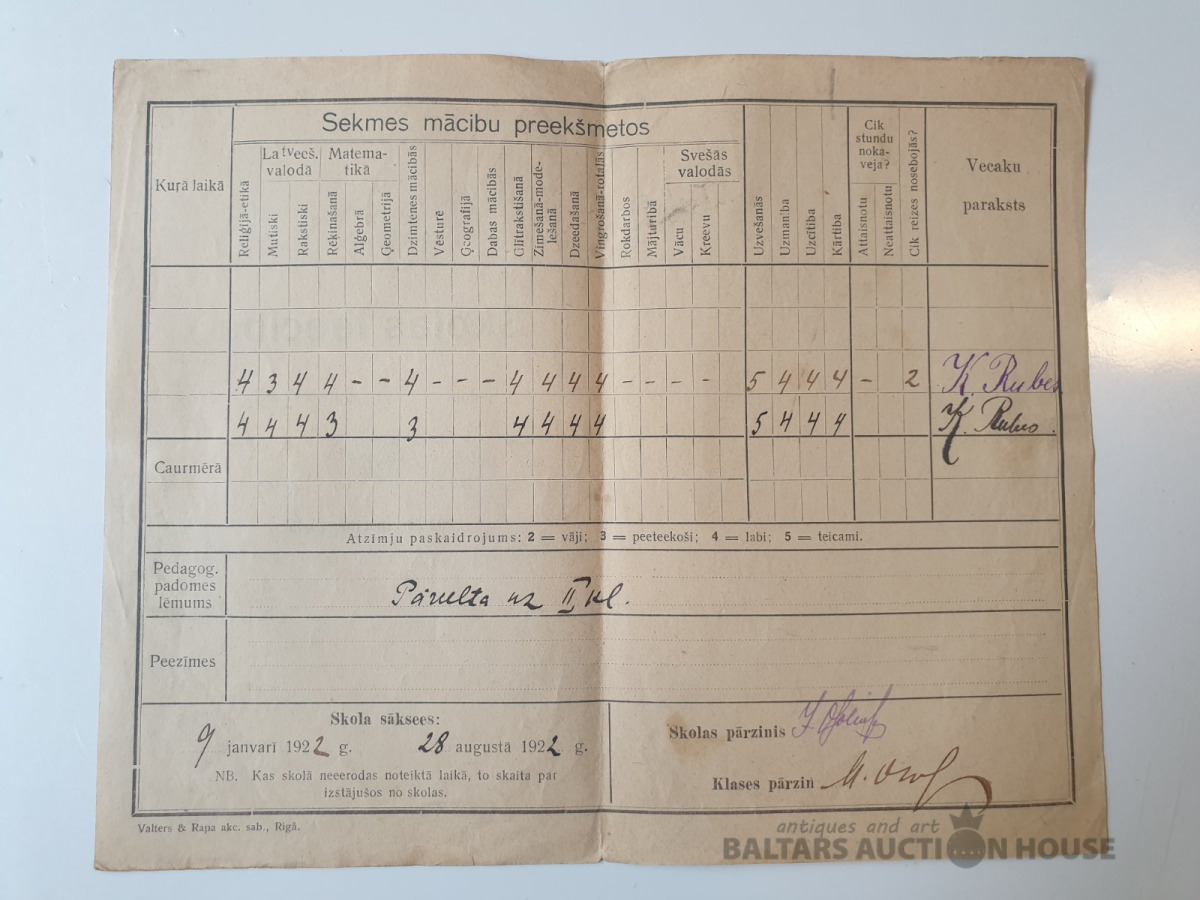 Sekmes mācibu preekšmetos
Kuŗā laikā
Reliģijā-etikā
Latveeš. valodā
Mutiski
Rakstiski
Matema-
tikā
Rēķinašanā
Alģebrā
Ģeometrijā
Dzimtenes mācibās
Vēsturē
Ģeografijā
Dabas mācibās
Glitrakstišanā
Zimešanā-mode-
lešanā
Dzeedašanā
Vingrošanā-rotaļās
Rokdarbos
Mājturibā
Svešās
valodās
Vācu
Kreevu
Uzvešanās
Uzmaniba
Uzcitiba
Kārtiba
Cik
stundu
noka-
veja?
Attaisnotu
Neattaisnotu
Cik reizes nosebojās?
Vecaku
paraksts
4 3 4 4 – – 4 – – – 4 4 4 4 – – – – 5 4 4 4 – 2 K. Rubes
4 4 4 3 3 4 4 4 4 5 4 4 4 K. Rubes
Caurmērā
Atzimju paskaidrojums: 2 = vāji; 3 = peeteekoši; 4 = labi; 5 = teicami.
Pedagog.
padomes
lēmums
Pārcelta uz II kl.
Peezīmes
Skola sāksees:
9 janvarī 1922 g. 28 augustā 1922 g.
NB. Kas skolā neeerodas noteiktā laikā, to skaita par
izstājušos no skolas.
Skolas pārzinis
Klases pārzin
Valters & Rapa akc. sab., Rigā.
antiques and art
BALTARS AUCTION HOUSE